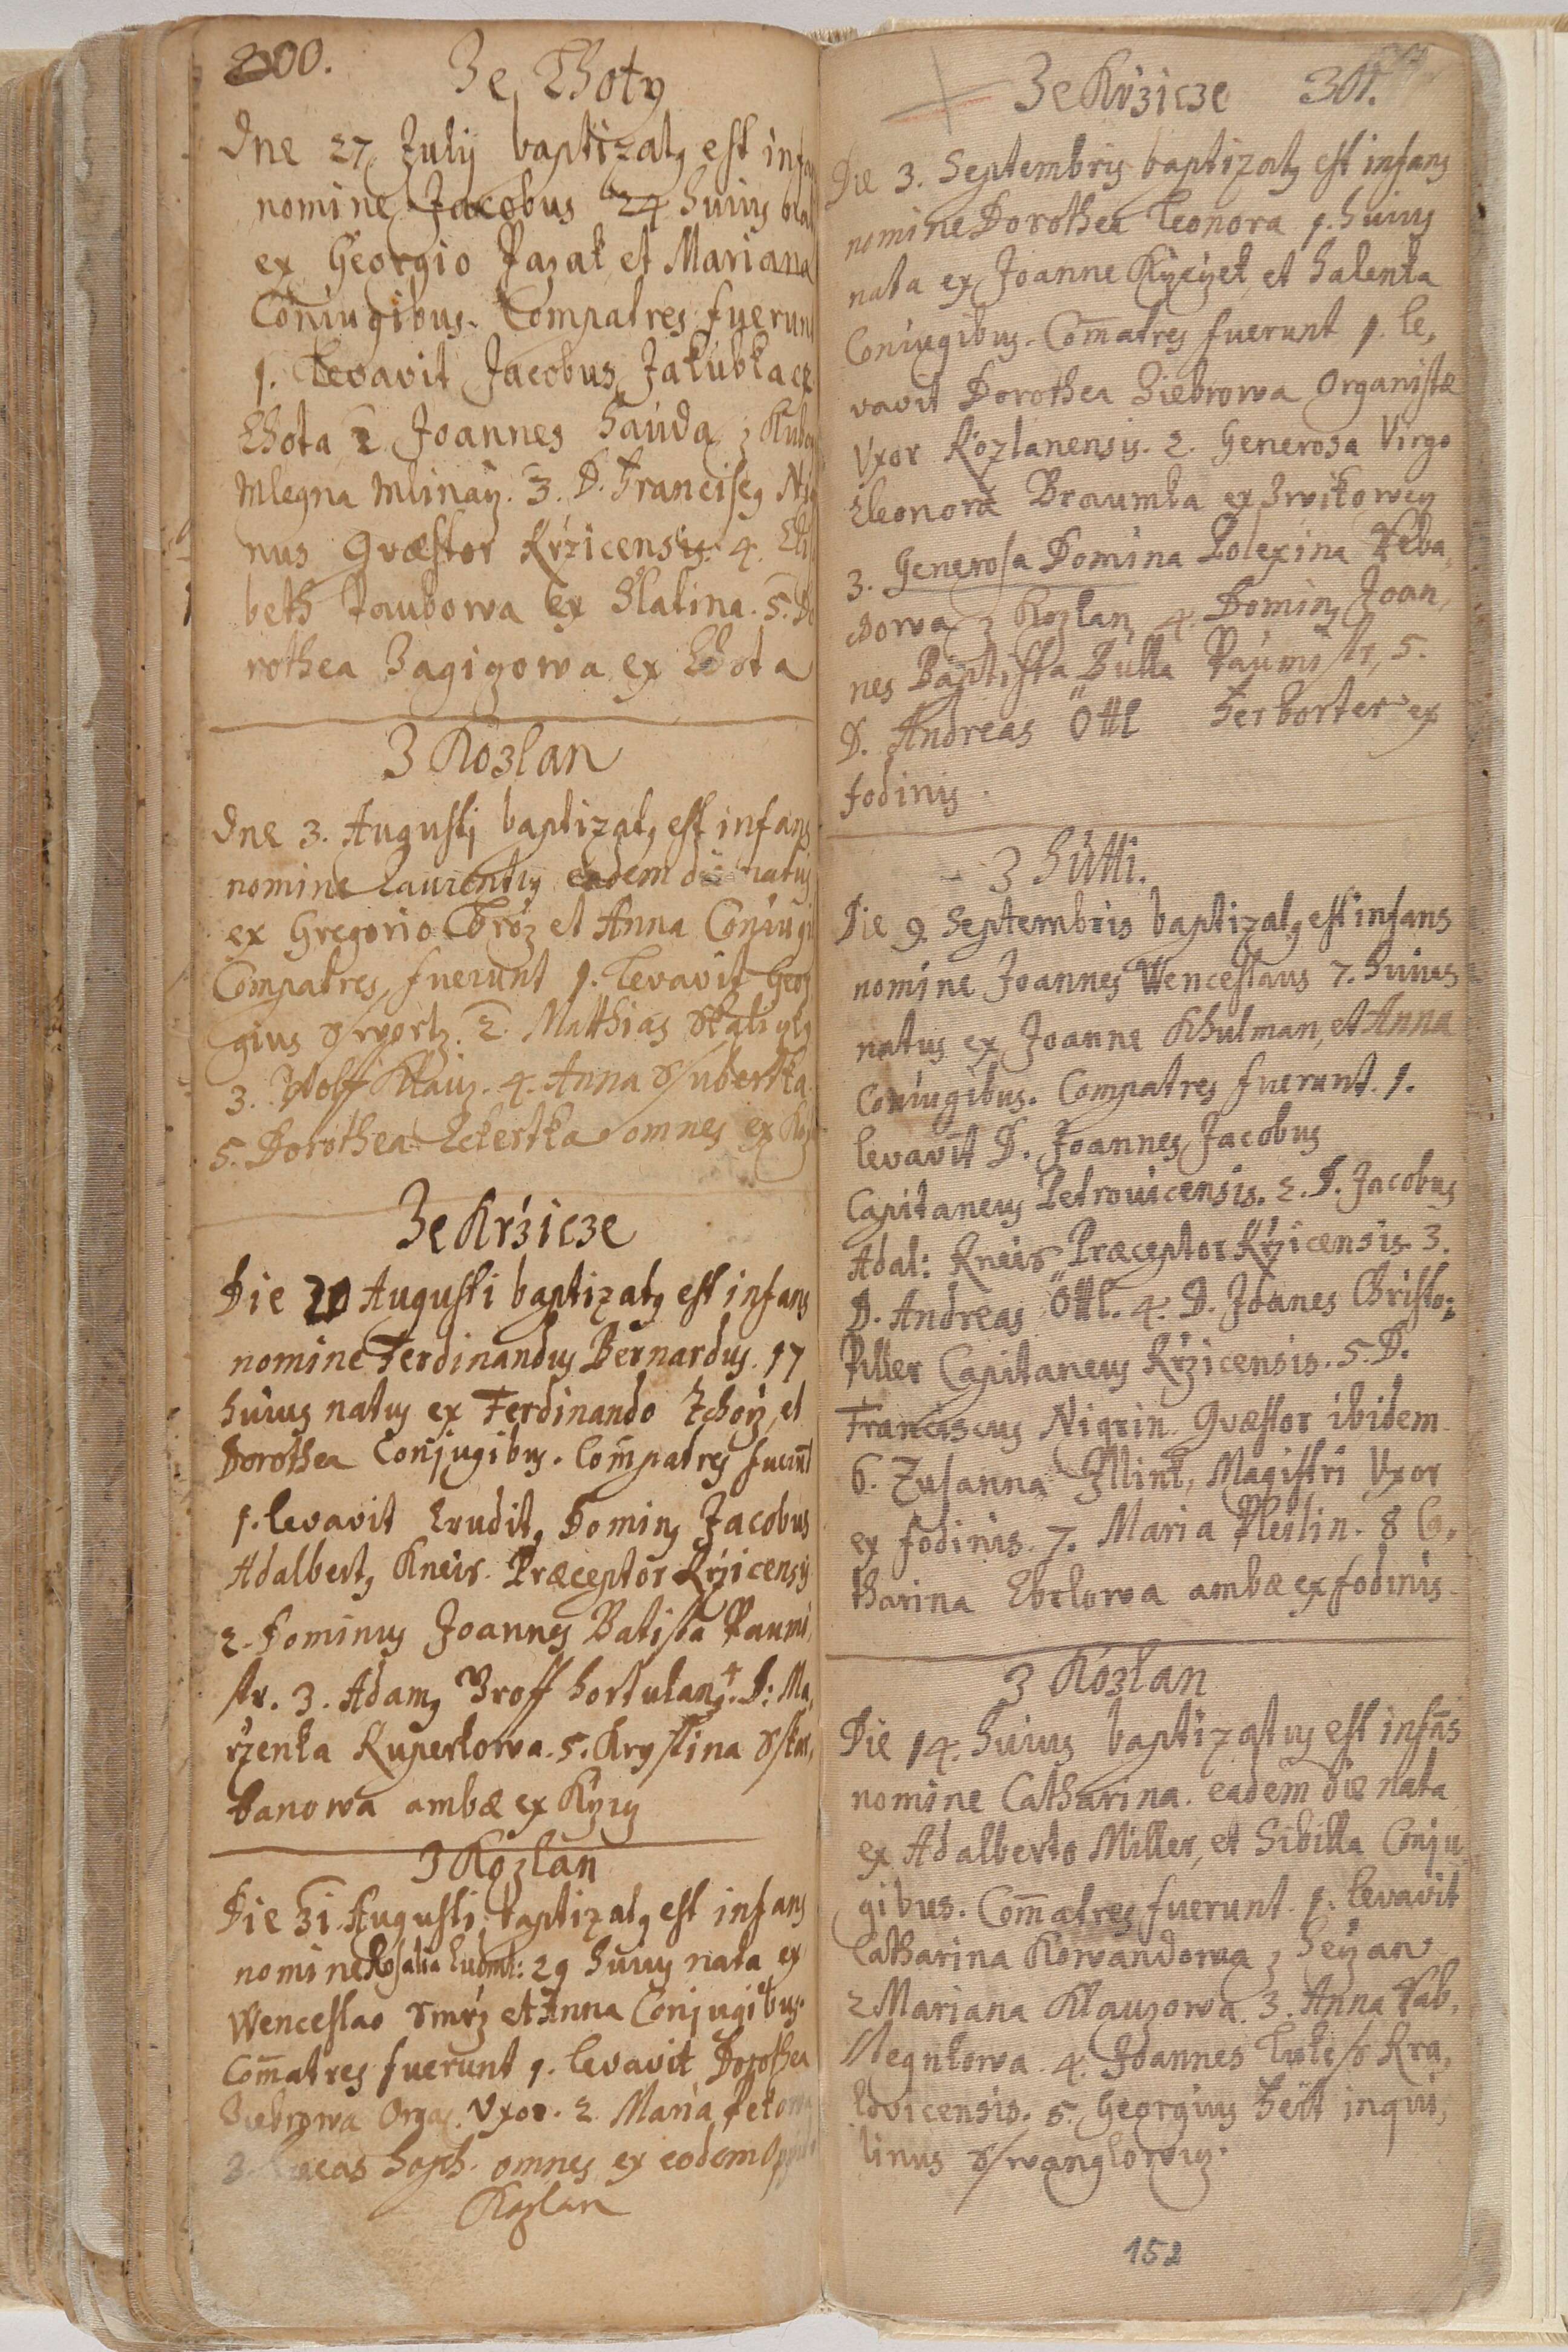 300.
Ze Lhoty
Dne 27 Julij baptizatq est infan
nomine Jacobus 24 huius
ex Georgio Pazak et Mariana
Coniugibus. Compatres fuerunt
1. Levavit Jacobus Jakubka ex
Lhota 2 Joannes Hauda z
Mlegna Mlinarz. 3. D. Franciscq Ni
nus Qvæstor Krzicensis. 4. Eli
beth Paubowa ex Slatina. 5. Do
rothea Zagizowa ex Lhota
Z Kozlan
Dne 3. Augusti baptizatq est infans
nomine Laurentiq eadem die natus
ex Gregorio et Anna Coniugi
Compatres fuerunt 1. Levavit Geor
gius 2. Matthias
3. Wolff Klauz. 4. Anna Ssubertka.
5. Dorothea Eckertka omnes ex
Ze Krzicze
Die 20 Augusti baptizatq est infans
nomine Ferdinandus Bernardus. 17
huius natus ex Ferdinando et
Dorothea Conjugibus. Compatres fuerunt
1. levavit Eruditq Dominq Jacobus
Adalbertq Kneis. Præceptor Krzicensis
2. Dominus Joannes Batista Paumi,
str. 3. Adamq Broff hortulanq. 4. D: Ma,
rzenka Ruperkowa. 5. Krystina Sskar,
banowa ambæ ex
Z Kozlan
Die 31. Augusti baptizatq est infans
nomine Rosalia Ludml: 29 huius nata ex
Wenceslao Ssmrz et Anna Conjugibus.
Com̄atres fuerunt 1. levavit Dorothea
Ziebrowa Vxor. 2. Maria
3. omnes ex eodem
Kozlan
Ze Krzicze 301.
Die 3. Septembris baptizatq est infans
nomine Dorothea Leonora 1. huius
nata ex Joanne et Halenka
Coniugibus. Com̄atres fuerunt 1. le,
vavit Dorothea Ziebrowa Organistæ
Vxor Kozlanensis. 2. Generosa Virgo
Eleonora ex Zwikowcy
3. Generosa Domina Polexina
z Kozlan 4. Dominq Joan,
nes Baptista Bulla Paumistr, 5.
D. Andreas Öttl ex
fodinis.
Z Hutti.
Die 9 Septembris baptizatq est infans
nomine Joannes Wenceslaus 7. huius
natus ex Joanne Khulman, et Anna
Coniugibus. Compatres fuerunt. 1.
levavit D. Joannes Jacobus
Capitaneus Petrovicensis. 2. D. Jacobus
Adal: Kneis Præceptor Krzicensis. 3.
D. Andreas Öttl. 4. D. Joanes Christo:
Piller Capitaneus Krzicensis. 5. D.
Franciscus Nigrin. Qvæstor ibidem.
6. Zusanna Magistri Vxor
ex fodinis. 7. Maria 8 Ca,
tharina ambæ ex fodinis.
Z Kozlan
Die 14. huius baptizatus est infans
nomine Catharina. eadem die nata
ex Adalberto Miller, et Sibilla Conju
gibus. Com̄atres fuerunt. 1. levavit
Catharina Kowandowa z
2 Mariana Klauzowa. 3. Anna
4. Joannes Kra,
lovicensis. 5. Georgius inqui,
linus
152